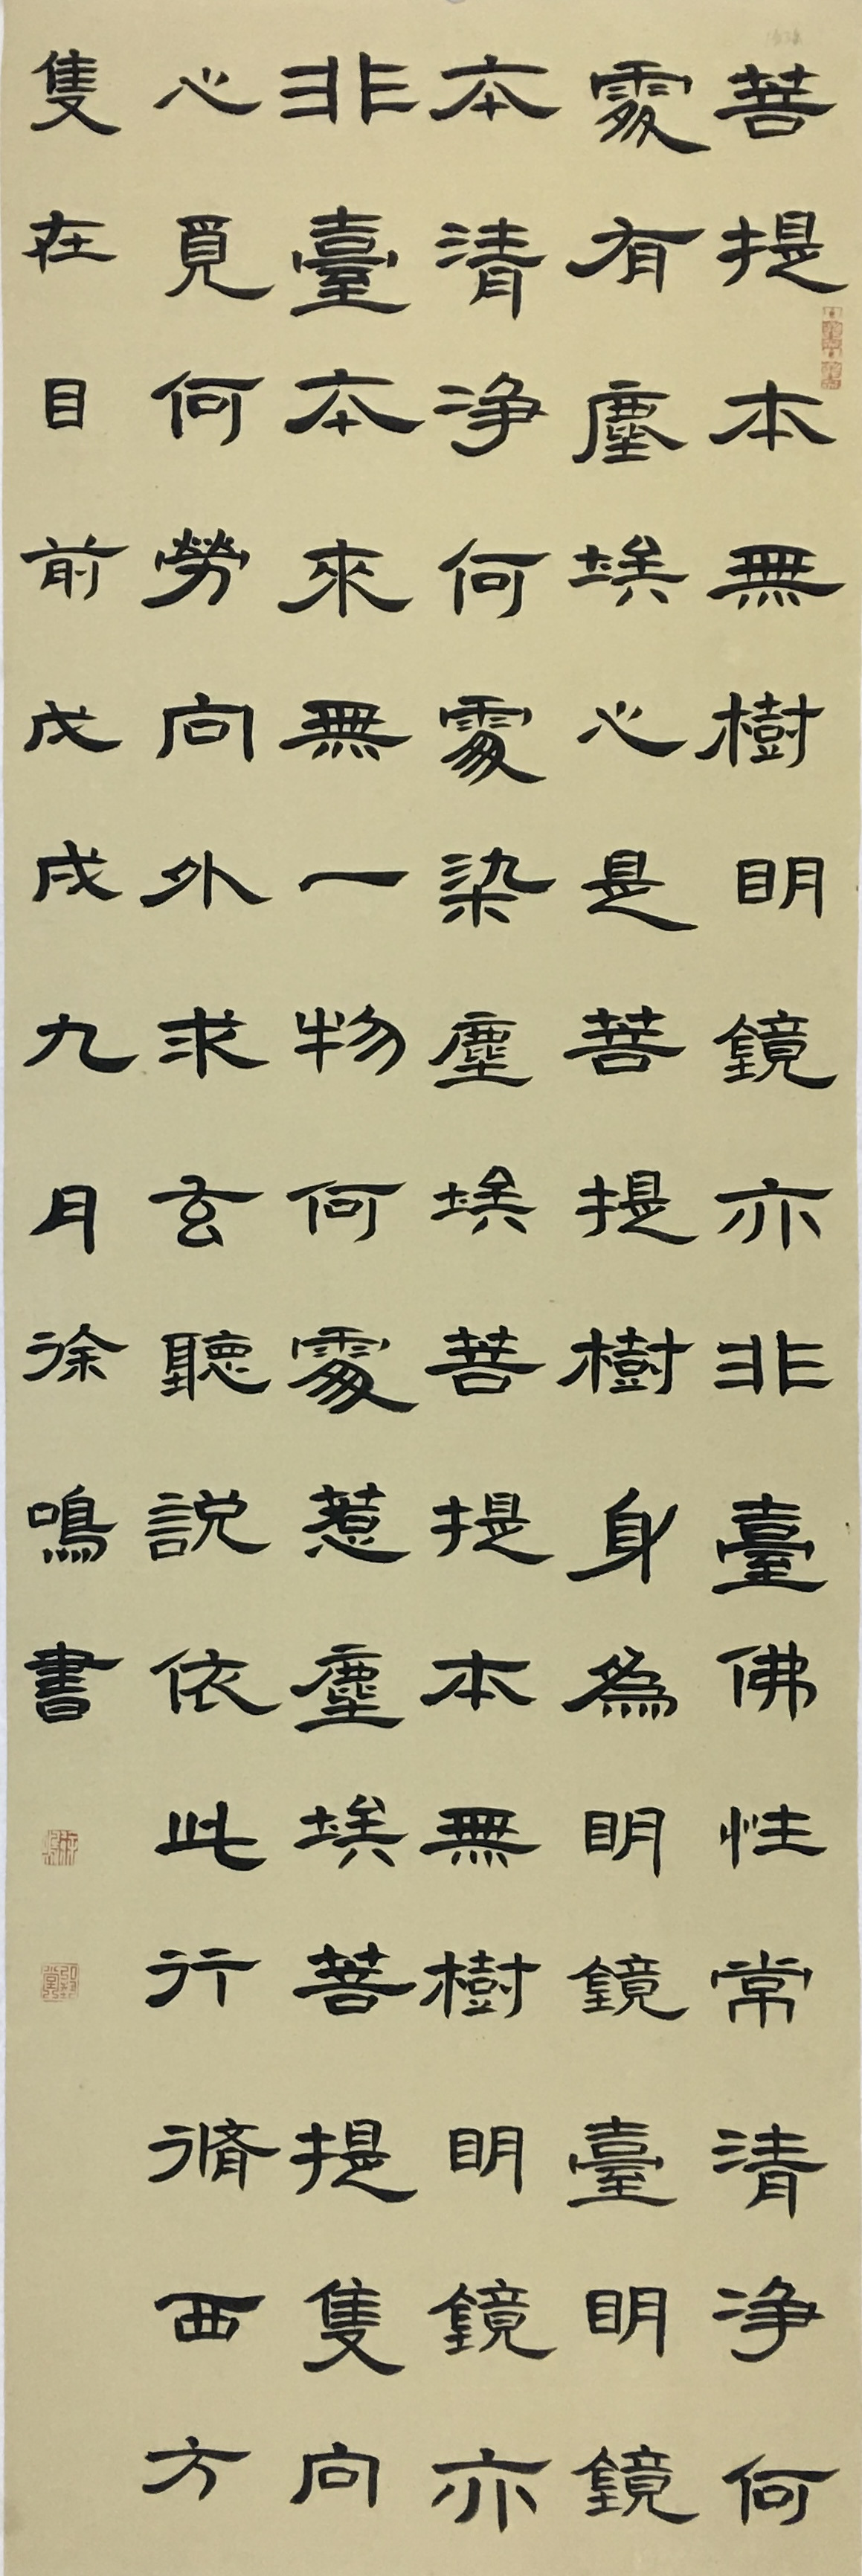 菩提本無樹明鏡亦非臺佛性常清净何
處有塵埃心是菩提樹身為明鏡臺明鏡
本清净何處染塵埃菩提本無樹明鏡亦
非臺本來無一物何處惹塵埃菩提隻向
心覓何勞向外求玄聽說依此行脩西方
隻在目前戊戌九月徐鳴書